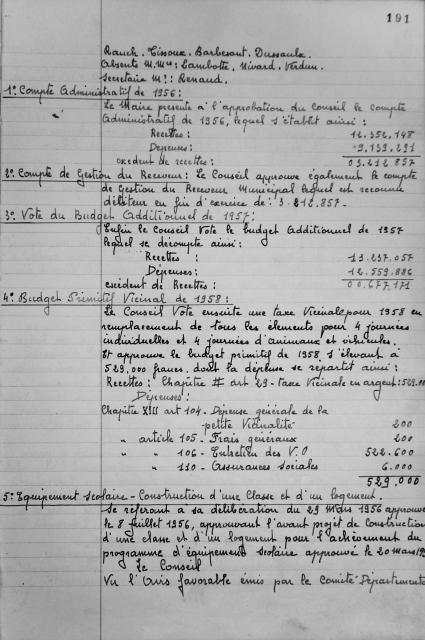 191
Rauch. Tissoux. Barbesant. Dussaulx.
Absents M.Mrs: Lambotte. Nivard. Verdun.
Secretaire Mr: Renaud.
1º Compte Administratif de 1956:
Le Maire presente à l'approbation du Conseil le compte
Administratif de 1956, lequel s'établit ainsi:
Recettes: 12.352.148
Depenses: 9.139.291
excédent de recettes: 03.212.857
2º Compte de Gestion du Receveur: Le Conseil approuve également le compte
de Gestion du Receveur Municipal lequel est reconnu
débiteur en fin d'exercice de: 3.212.857-
3º Vote du Budget Additionnel de 1957:
Enfin le Conseil Vote le budget Additionnel de 1957
lequel se décompte ainsi:
Recettes: 13.237.057
Dépenses: 12.559.886
excédent de Recettes: 00.677.171
4º Budget Primitif Vicinal de 1958:
Le Conseil Vote ensuite une taxe Vicinale pour 1958 en
remplacement de tous les elements pour 4 journées
individuelles et 4 journées d'animaux et vehicules.
Et approuve le budget primitif de 1958 s'élevant à
529.000 francs, dont la dépense se répartit ainsi:
Recettes: Chapitre II art 29 - taxe Vicinale en argent: 529.00
Dépenses:
Chapitre XIII art 104 - Dépense générale de la
petite Vicinalité 200
" article 105 - Frais généraux 200
" " 106 - Entretien des V.O 522.600
" " 110 - Assurances sociales 6.000
529.000
5º Equipement scolaire - Construction d'une Classe et d'un logement.
Se référant à sa délibération du 29 Mars 1956 approuv
le 8 Juillet 1956, approuvant l'avant projet de Construction
d'une classe et d'un logement pour l'achèvement du
programme d'équipement scolaire approuvé le 20 Mars 19
Le Conseil
Vu l'Avis favorable émis par le Comité Départementa